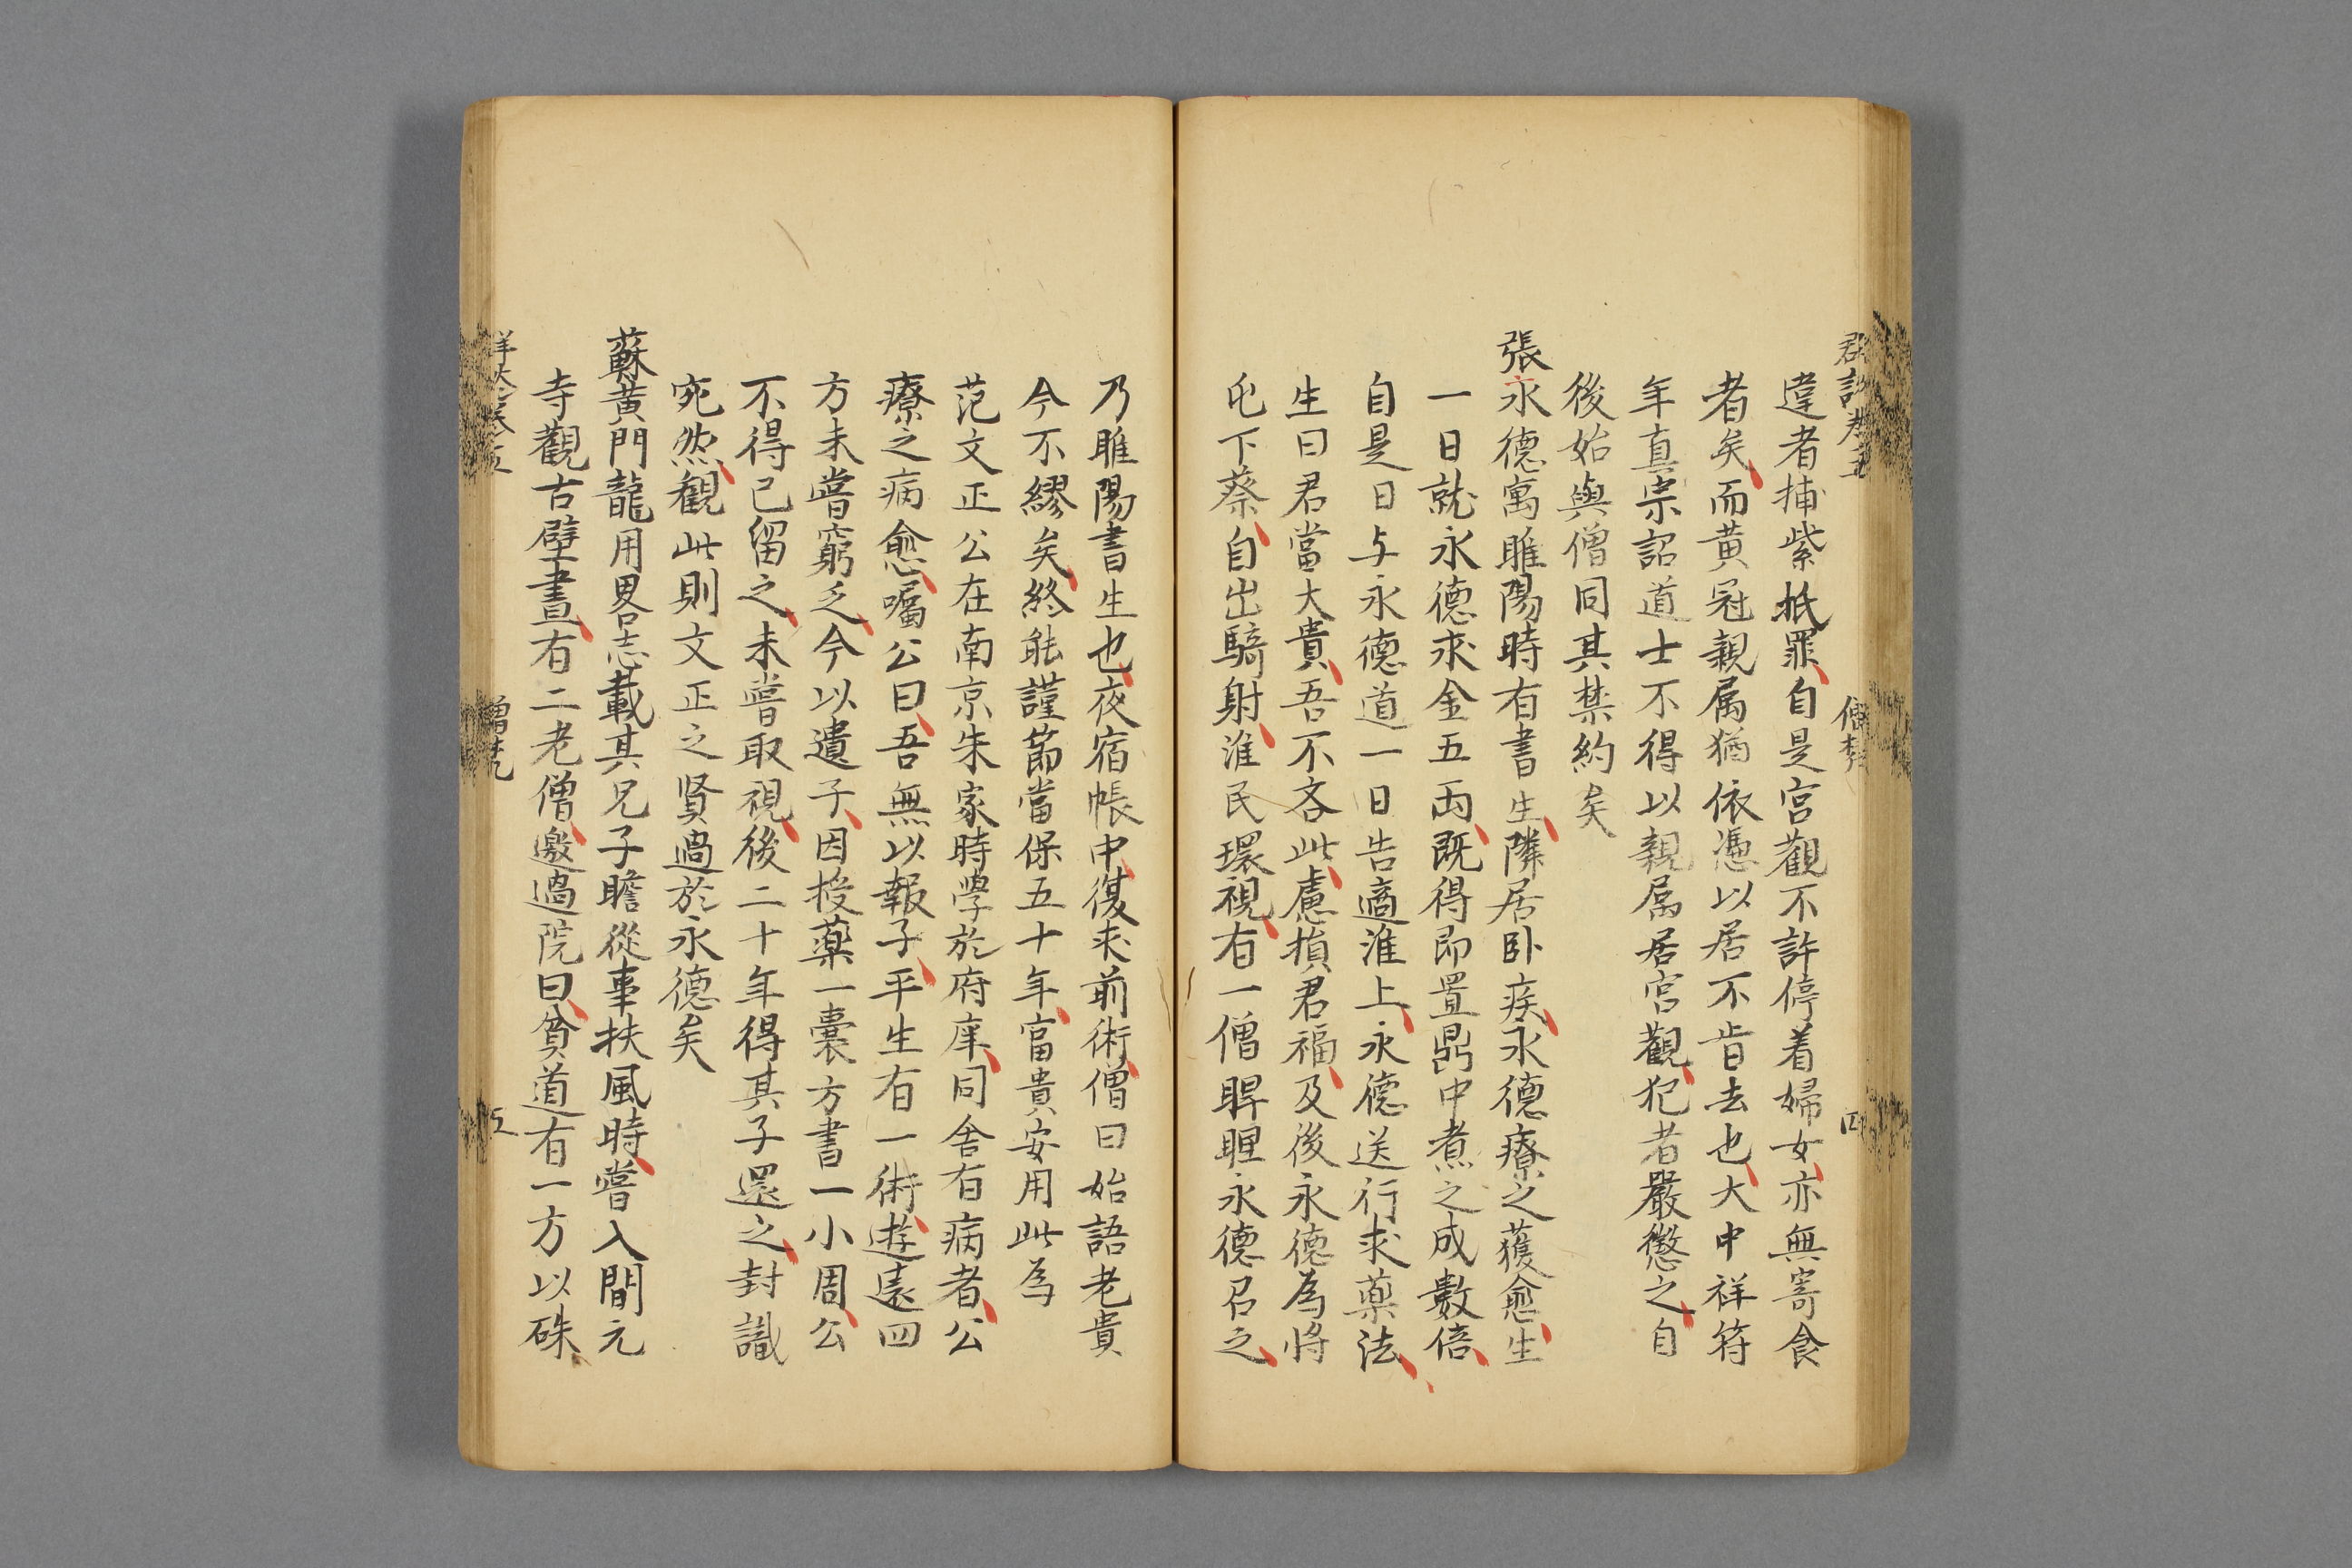 違者捕紫抵罪自是宮觀不許停着婦女亦無寄食
者矣而黃冠親属猶依憑以居不肯去也大中祥符
年真宗詔道士不得以親属居宮觀犯者嚴懲之自
後始與僧同其禁約矣
張永德寓睢陽時有書生隣居卧疾永德療之獲愈生
一日就永德求金五两既得即置鼎中煮之成數倍
自是日与永德道一日告適淮上永德送行求藥法
生曰君當大貴吾不吝此慮損君福及後永德為將
屯下蔡自出騎射淮民環視有一僧睅睚永德召之
乃睢陽書生也夜宿帳中復求前術僧曰始語老貴
今不繆矣終能謹節當保五十年富貴安用此為
范文正公在南京朱家時學於府庠同舍有病者公
療之病愈囑公曰吾無以報子平生有一術遊遠四
方未嘗窮乏今以遺子因授藥一囊方書一小周公
不得已留之未嘗取視後二十年得其子還之封識
宛然觀此則文正之賢過於永德矣
蘇黃門龍用畧志載其兄子瞻從事扶風時嘗入開元
寺觀古壁畫有二老僧邀過院曰貧道有一方以硃
五